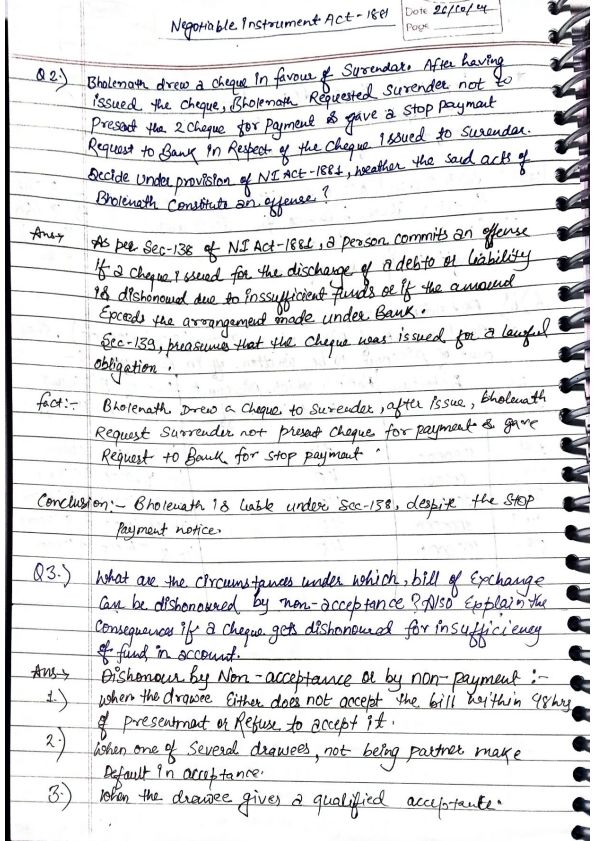 Negotiable Instrument Act - 1881
Date 26/10/24
Page
Q 2.) Bholenath drew a cheque in favour of Surendar. After having
issued the cheque, Bholenath Requested Surender not to
Present the 2 Cheque for Payment & gave a stop payment
Request to Bank in Respect of the cheque issued to Surendar.
Decide under provision of NI ACT-1881, weather the said acts of
Bholenath Constitute an offense?
Ans→ As per Sec-138 of NI Act-1881, a person commits an offense
if a cheque issued for the discharge of a debt or liability
is dishonoured due to inssufficient funds or if the amound
Exceeds the arrangement made under Bank.
Sec-139, preasumes that the cheque was issued for a lawful
obligation.
fact:- Bholenath Drew a cheque to Surender, after issue, bholenath
Request Surrender not present cheque for payment & gave
Request to Bank for stop payment.
Conclusion:- Bholenath is liable under Sec-138, despite the STOP
Payment notice.
Q3.) What are the circumstances under which, bill of Exchange
Can be dishonoured by non-acceptance? Also Epplain the
Consequences if a cheque gets dishonoured for insufficieney
of fund in account.
Ans→ Dishonour by Non-acceptance or by non-payment :-
1.) when the drawee Either does not accept the bill within 48hrs
of presentment or Refuse to accept it.
2.) when one of several drawees, not being partner make
Default in acceptance.
3.) when the drawee gives a qualified acceptance.